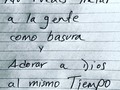 No puedes tratar
a la gente
como basura
y
Adorar a Dios
al mismo Tiempo